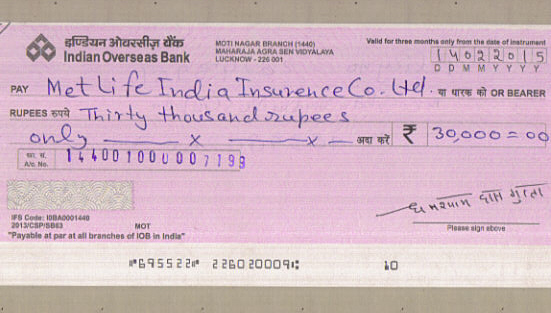 इण्डियन ओवरसीज़ बैंक
Indian Overseas Bank
MOTI NAGAR BRANCH (1440)
MAHARAJA AGRA SEN VIDYALAYA
LUCKNOW - 226 001
Valid for three months only from the date of instrument
14022015
D D M M Y Y Y Y
PAY MetLife India Insurence Co. Ltd. या धारक को OR BEARER
RUPEES रुपये Thirty thousand rupees
only x x अदा करें ₹ 30,000=00
खा. सं.
A/c. No. 144001000007199
IFS Code: IOBA0001440
2013/CSP/SB63 MOT
"Payable at par at all branches of IOB in India"
घनश्याम दास गुप्ता
Please sign above
⑈695522⑈ 226020009⑆ 10